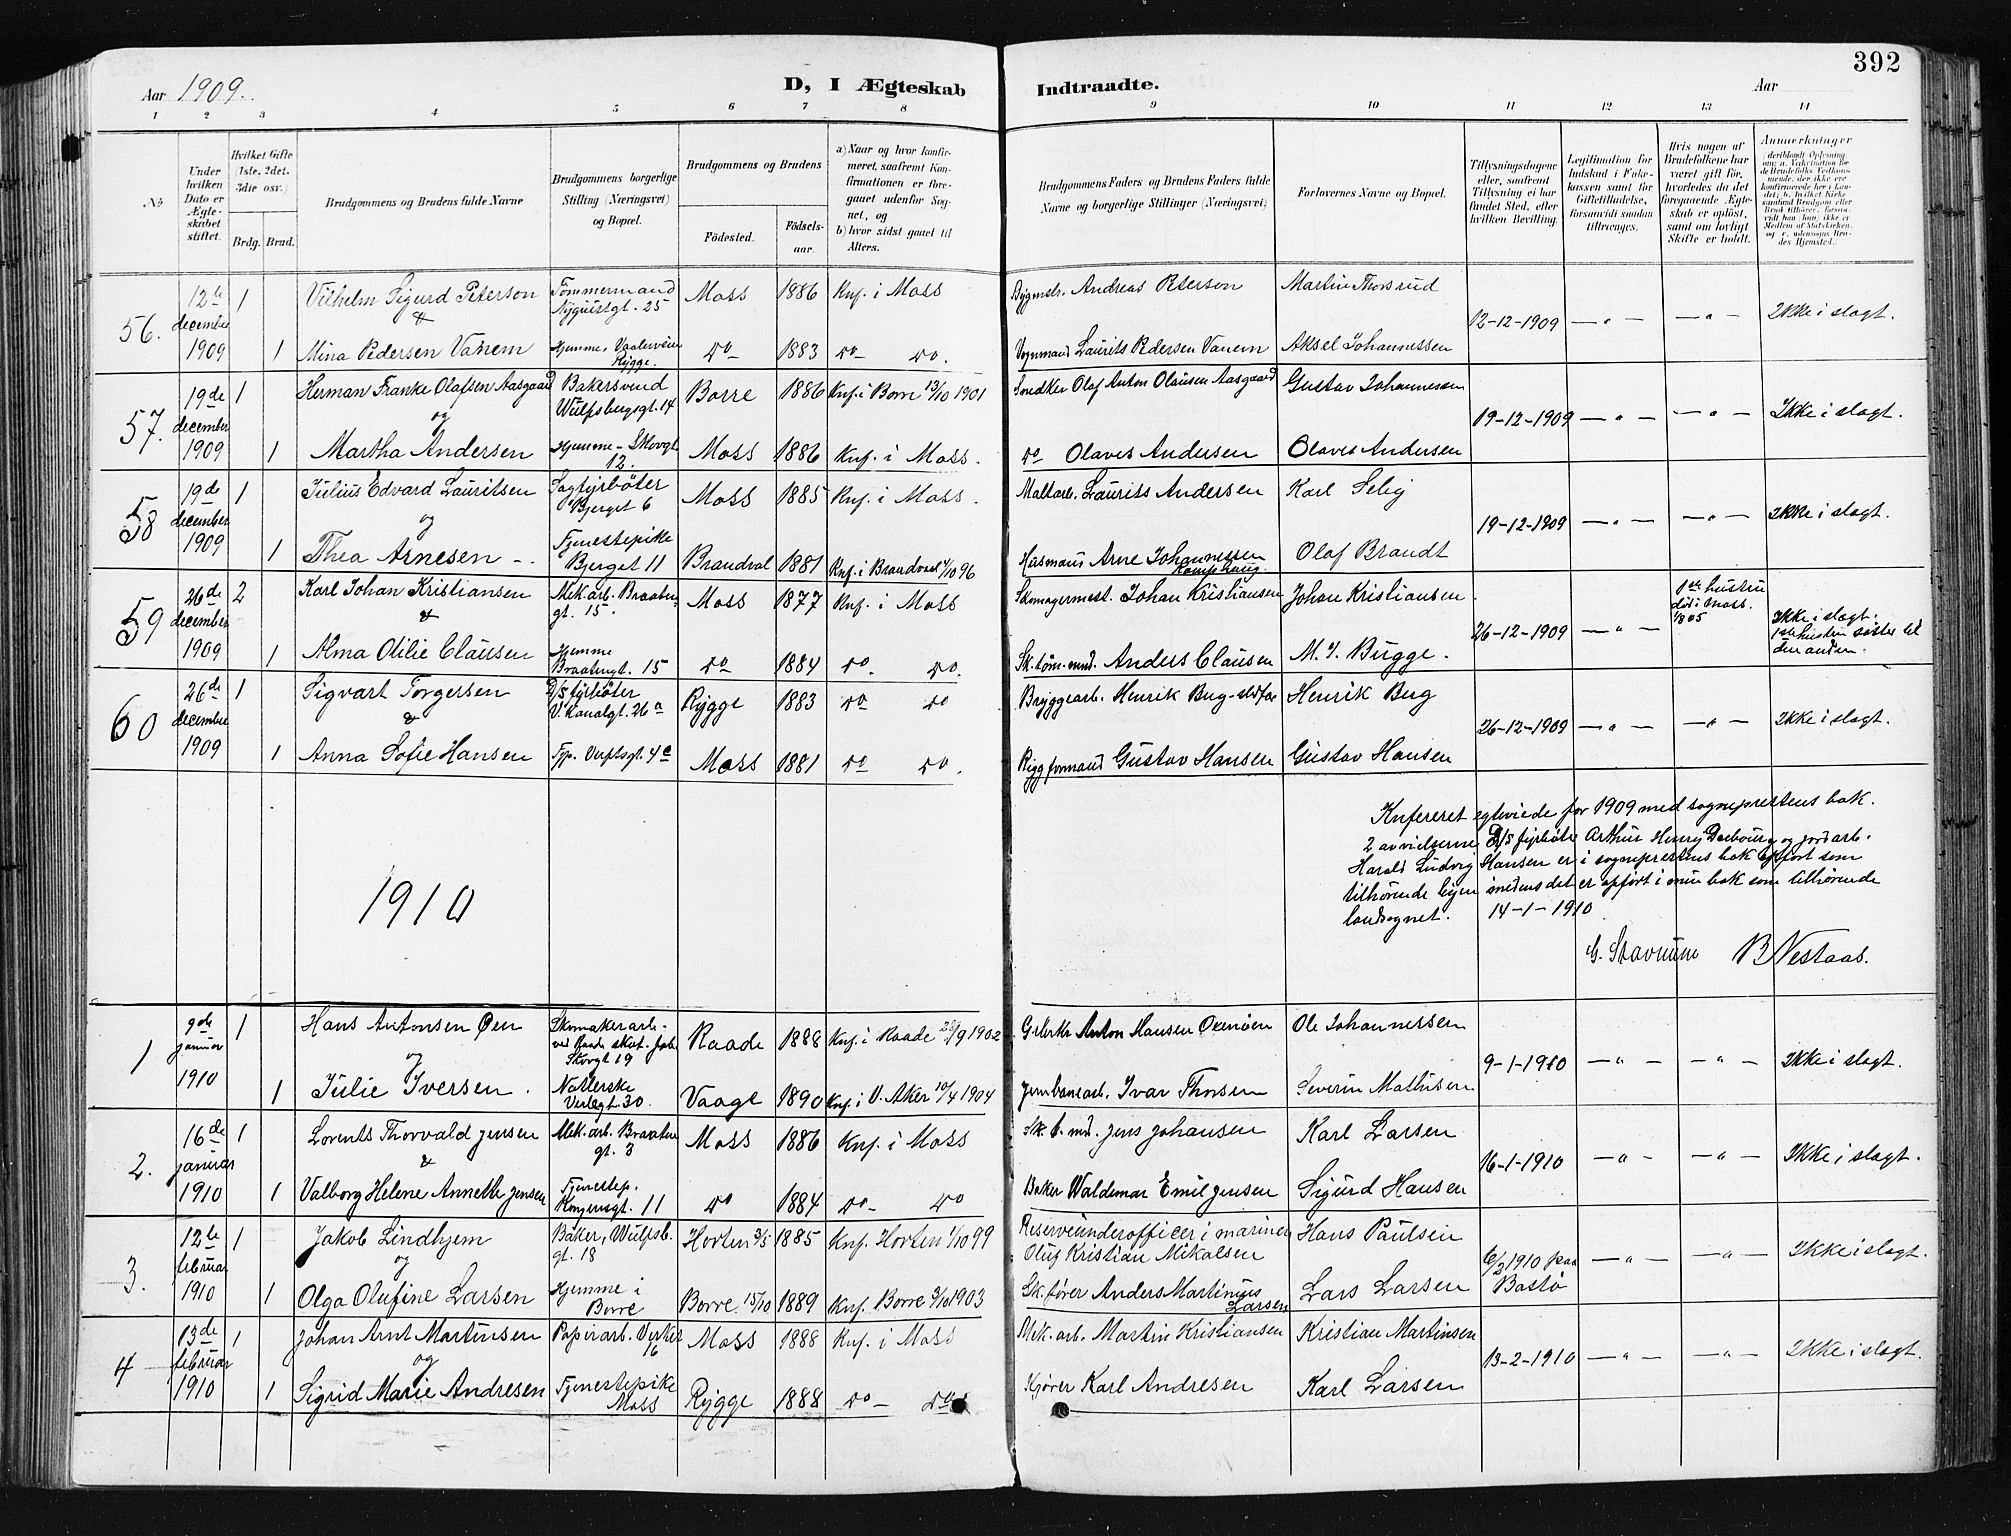 392
Aar 1909. D, I Ægteskab Indtraadte. Aar
1 2 3 4 5 6 7 8 9 10 11 12 13 14
№
Under hvilken Dato er Ægteskabet stiftet.
Hvilket Gifte (1ste, 2det, 3die osv.)
Brdg. Brud.
Brudgommens og Brudens fulde Navne
Brudgommens borgerlige Stilling (Næringsvei) og Bopæl.
Brudgommens og Brudens
Fødested.
Fødselsaar.
a) Naar og hvor konfirmeret, saafremt Konfirmationen er foregaaet udenfor Sognet, og
b) hvor sidst gaaet til Alters.
Brudgommens Faders og Brudens Faders fulde Navne og borgerlige Stillinger (Næringsvei)
Forlovernes Navne og Bopæl.
Tillysningsdagene eller, saafremt Tillysning ei har fundet Sted, efter hvilken Bevilling.
Legitimation for Indskud i Enkekassen samt for Giftetilladelse, forsaavidt saadan tiltrænges.
Hvis nogen af Brudefolkene har været gift før, hvorledes da det foregaaende Ægteskab er opløst, samt om lovligt Skifte er holdt.
Anmærkninger
56. 12te december 1909 1 Vilhelm Sigurd Peterson Tømmermand Nyquistgt. 25 Moss 1886 Knf. i Moss Bygmstr. Andreas Peterson Martin Thorsrud 12-12-1909 — " — — " — Ikke i slægt.
&
1 Mina Pedersen Vanem Hjemme, Vaalerveien Rygge. do 1883 do do. Vognmand Laurits Pedersen Vanem Aksel Johannessen
57. 19de december 1909 1 Herman Franke Olafsen Aasgaard Bakersvend Wulfsbergsgt. 14 Borre 1886 Knf. i Borre 13/10 1901 Snedker Olaf Anton Olausen Aasgaard Gustav Johannessen 19-12-1909 — " — — " — Ikke i slægt.
og
1 Martha Andersen Hjemme - Skovgt 12. Moss 1886 Knf. i Moss. do Olaves Andersen Olaves Andersen
58 19de december 1909 1 Julius Edvard Lauritsen Sagfyrbøter Bjerget 6 Moss 1885 Knf. i Moss. Maltarb. Laurits Andersen Karl Selig 19-12-1909 — " — — " — Ikke i slægt.
og
1 Thea Arnesen Tjenestepike Bjerget 11 Brandval 1881 Knf. i Brandval 4/10 96 Husmand Arne Johannessen Kampehaug. Olaf Brandt
59 26de december 1909 2 Karl Johan Kristiansen Mek. arb. Braatengt. 15. Moss 1877 Knf. i Moss Skomagermest. Johan Kristiansen Johan Kristiansen 26-12-1909 — " — 1ste hustru død i Moss. 1/8 05 Ikke i slægt. 1ste hustru søster til den anden.
&
1 Alma Otilie Clausen Hjemme Braatengt. 15 do 1884 do. do. Sk. tøm. mnd. Anders Clausen M. J. Bugge.
60 26de december 1909 1 Sigvart Torgersen D/S fyrbøter V. Kanalgt. 26a Rygge 1883 do do Bryggearb. Henrik Berg - stedfar Henrik Berg 26-12-1909 — " — — " — Ikke i slægt.
&
1 Anna Sofie Hansen Tjp. Verftsgt. 4a Moss 1881 do do. Riggformand Gustav Hansen Gustav Hansen
Knfereret egteviede for 1909 med sogneprestens bok.
2 av vielserne D/S fyrbøter Arthur Henry Daebourg og jordarb.
Harald Ludvig Hansen er i sogneprestens bok opført som
tilhørende byen medens det er opført i min bok som tilhørende
landsognet. 14-1-1910
G. Stavrum B Nestaas.
1910
1 9de januar 1910 1 Hans Antonsen Øen Skomakerarb. ved Raade skot. fab. Storgt 19 Raade 1888 Knf. i Raade 28/9 1902 Grbrkr Anton Hansen Oxenøen Ole Johannessen 9-1-1910 — " — — " — Ikke i slægt.
og
1 Julie Iversen. Natterske Verlegt. 30 Vaage 1890 Knf. i V. Aker 10/4 1904 Jernbanearb. Ivar Thorsen Severin Mathisen
2. 16de januar 1910 1 Lorents Thorvald Jensen Mek. arb. Braatengt. 3 Moss 1886 Knf. i Moss Sk. t. md. Jens Johansen Karl Larsen 16-1-1910 — " — — " — Ikke i slægt.
&
1 Valborg Helene Annette Jensen Tjenestep. Kongensgt. 11 do 1884 do do Baker Waldemar Emil Jensen Sigurd Hansen
3. 12te februar 1910 1 Jakob Lindhjem Baker, Wulfsb. gt. 18 Horten 3/5 1885 Knf. Horten 1/10 99 Reserveunderofficer i marinen Oluf Kristian Mikalsen Hans Paulsen 6/2 1910 paa Bastø — " — — " — Ikke i slægt.
og
1 Olga Olufine Larsen Hjemme i Borre Borre 15/10 1889 Knf. Borre 3/10 1903 Sk. fører Anders Martinius Larsen Lars Larsen
4 13de februar 1910 1 Johan Arnt Martinsen Papirarb. Verket 16 Moss 1888 Knf. i Moss Mek. arb. Martin Kristiansen Kristian Martinsen 13-2-1910 — " — — " — Ikke i slægt.
og
1 Sigrid Marie Andresen Tjenestepike Moss Rygge 1888 do do Kjører Karl Andresen Karl Larsen